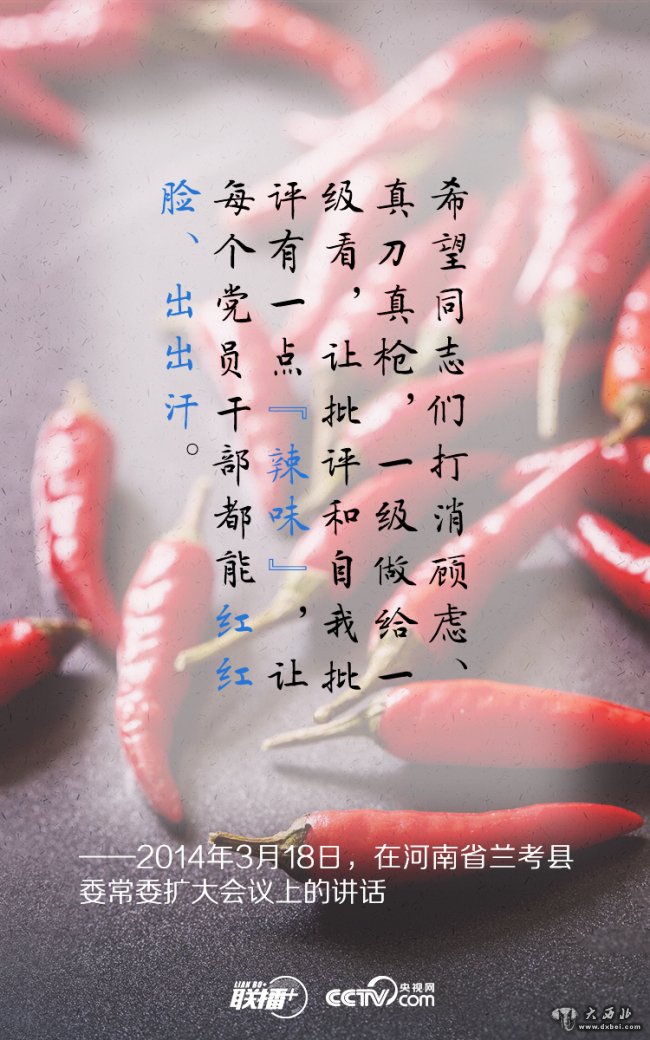 希望同志们打消顾虑、
真刀真枪，一级做给一
级看，让批评和自我批
评有一点『辣味』，让
每个党员干部都能红红
脸、出出汗。
——2014年3月18日，在河南省兰考县
委常委扩大会议上的讲话
LIAN BO+
联播+
CCTV.com 央视网
大西北
www.dxbei.com